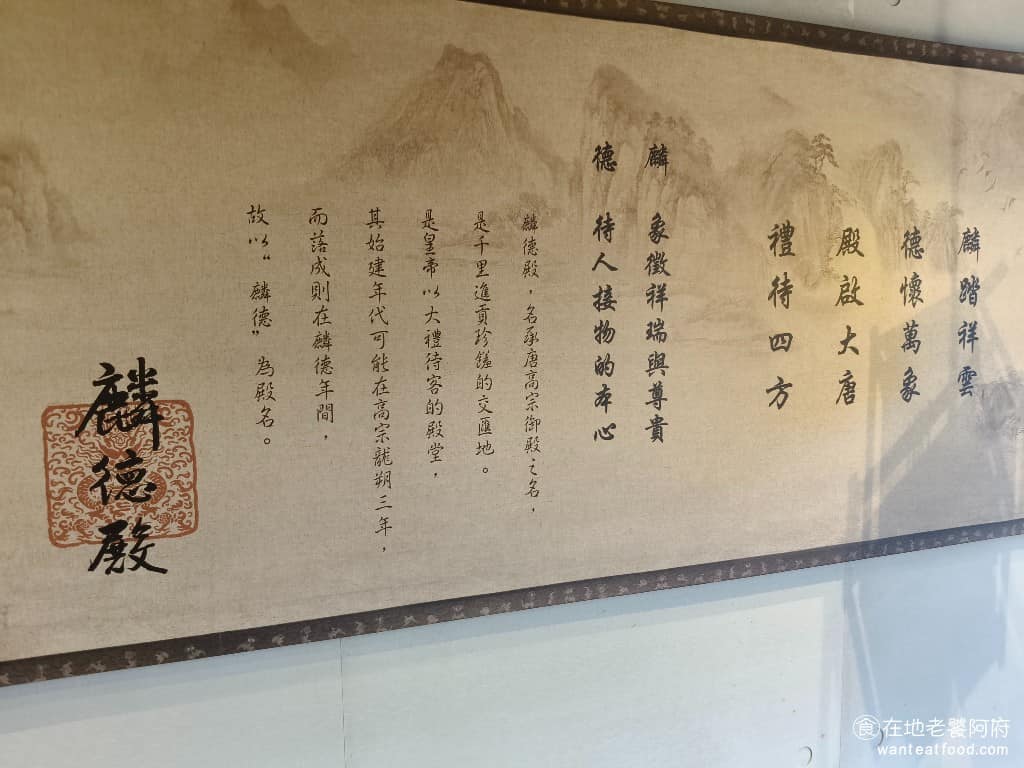 麟踏祥雲
德懷萬象
殿啟大唐
禮待四方
麟 象徵祥瑞與尊貴
德 待人接物的本心
麟德殿，名承唐高宗御殿之名，
是千里進貢珍饈的交匯地。
是皇帝以大禮待客的殿堂，
其始建年代可能在高宗龍朔三年，
而落成則在麟德年間，
故以“麟德”為殿名。
麟德殿
食在地老饕阿府
wanteatfood.com